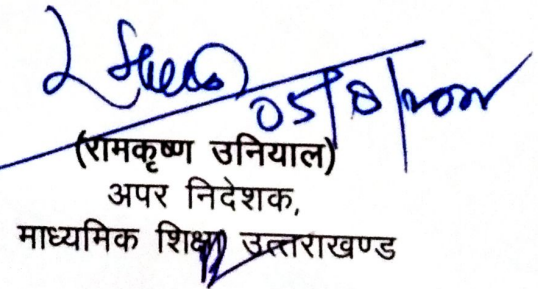 05/8/
(रामकृष्ण उनियाल)
अपर निदेशक,
माध्यमिक शिक्षा उत्तराखण्ड